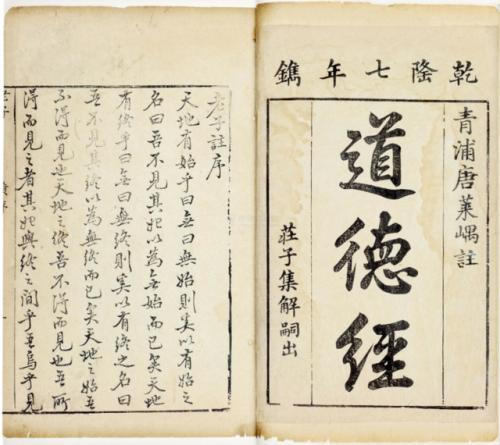 乾隆七年鐫
青浦唐萊嵎註
道德經
荘子集解嗣出
老子註序
天地有始乎曰無曰無始則奚以有始之
名曰吾不見其始以為无始而已矣天地
有終乎曰無曰無終則奚以有終之名曰
吾不見其終以為無終而已矣天地之始吾
不得而見也天地之終吾不得而見也吾所
得而見之者其始與終之間乎吾烏乎見